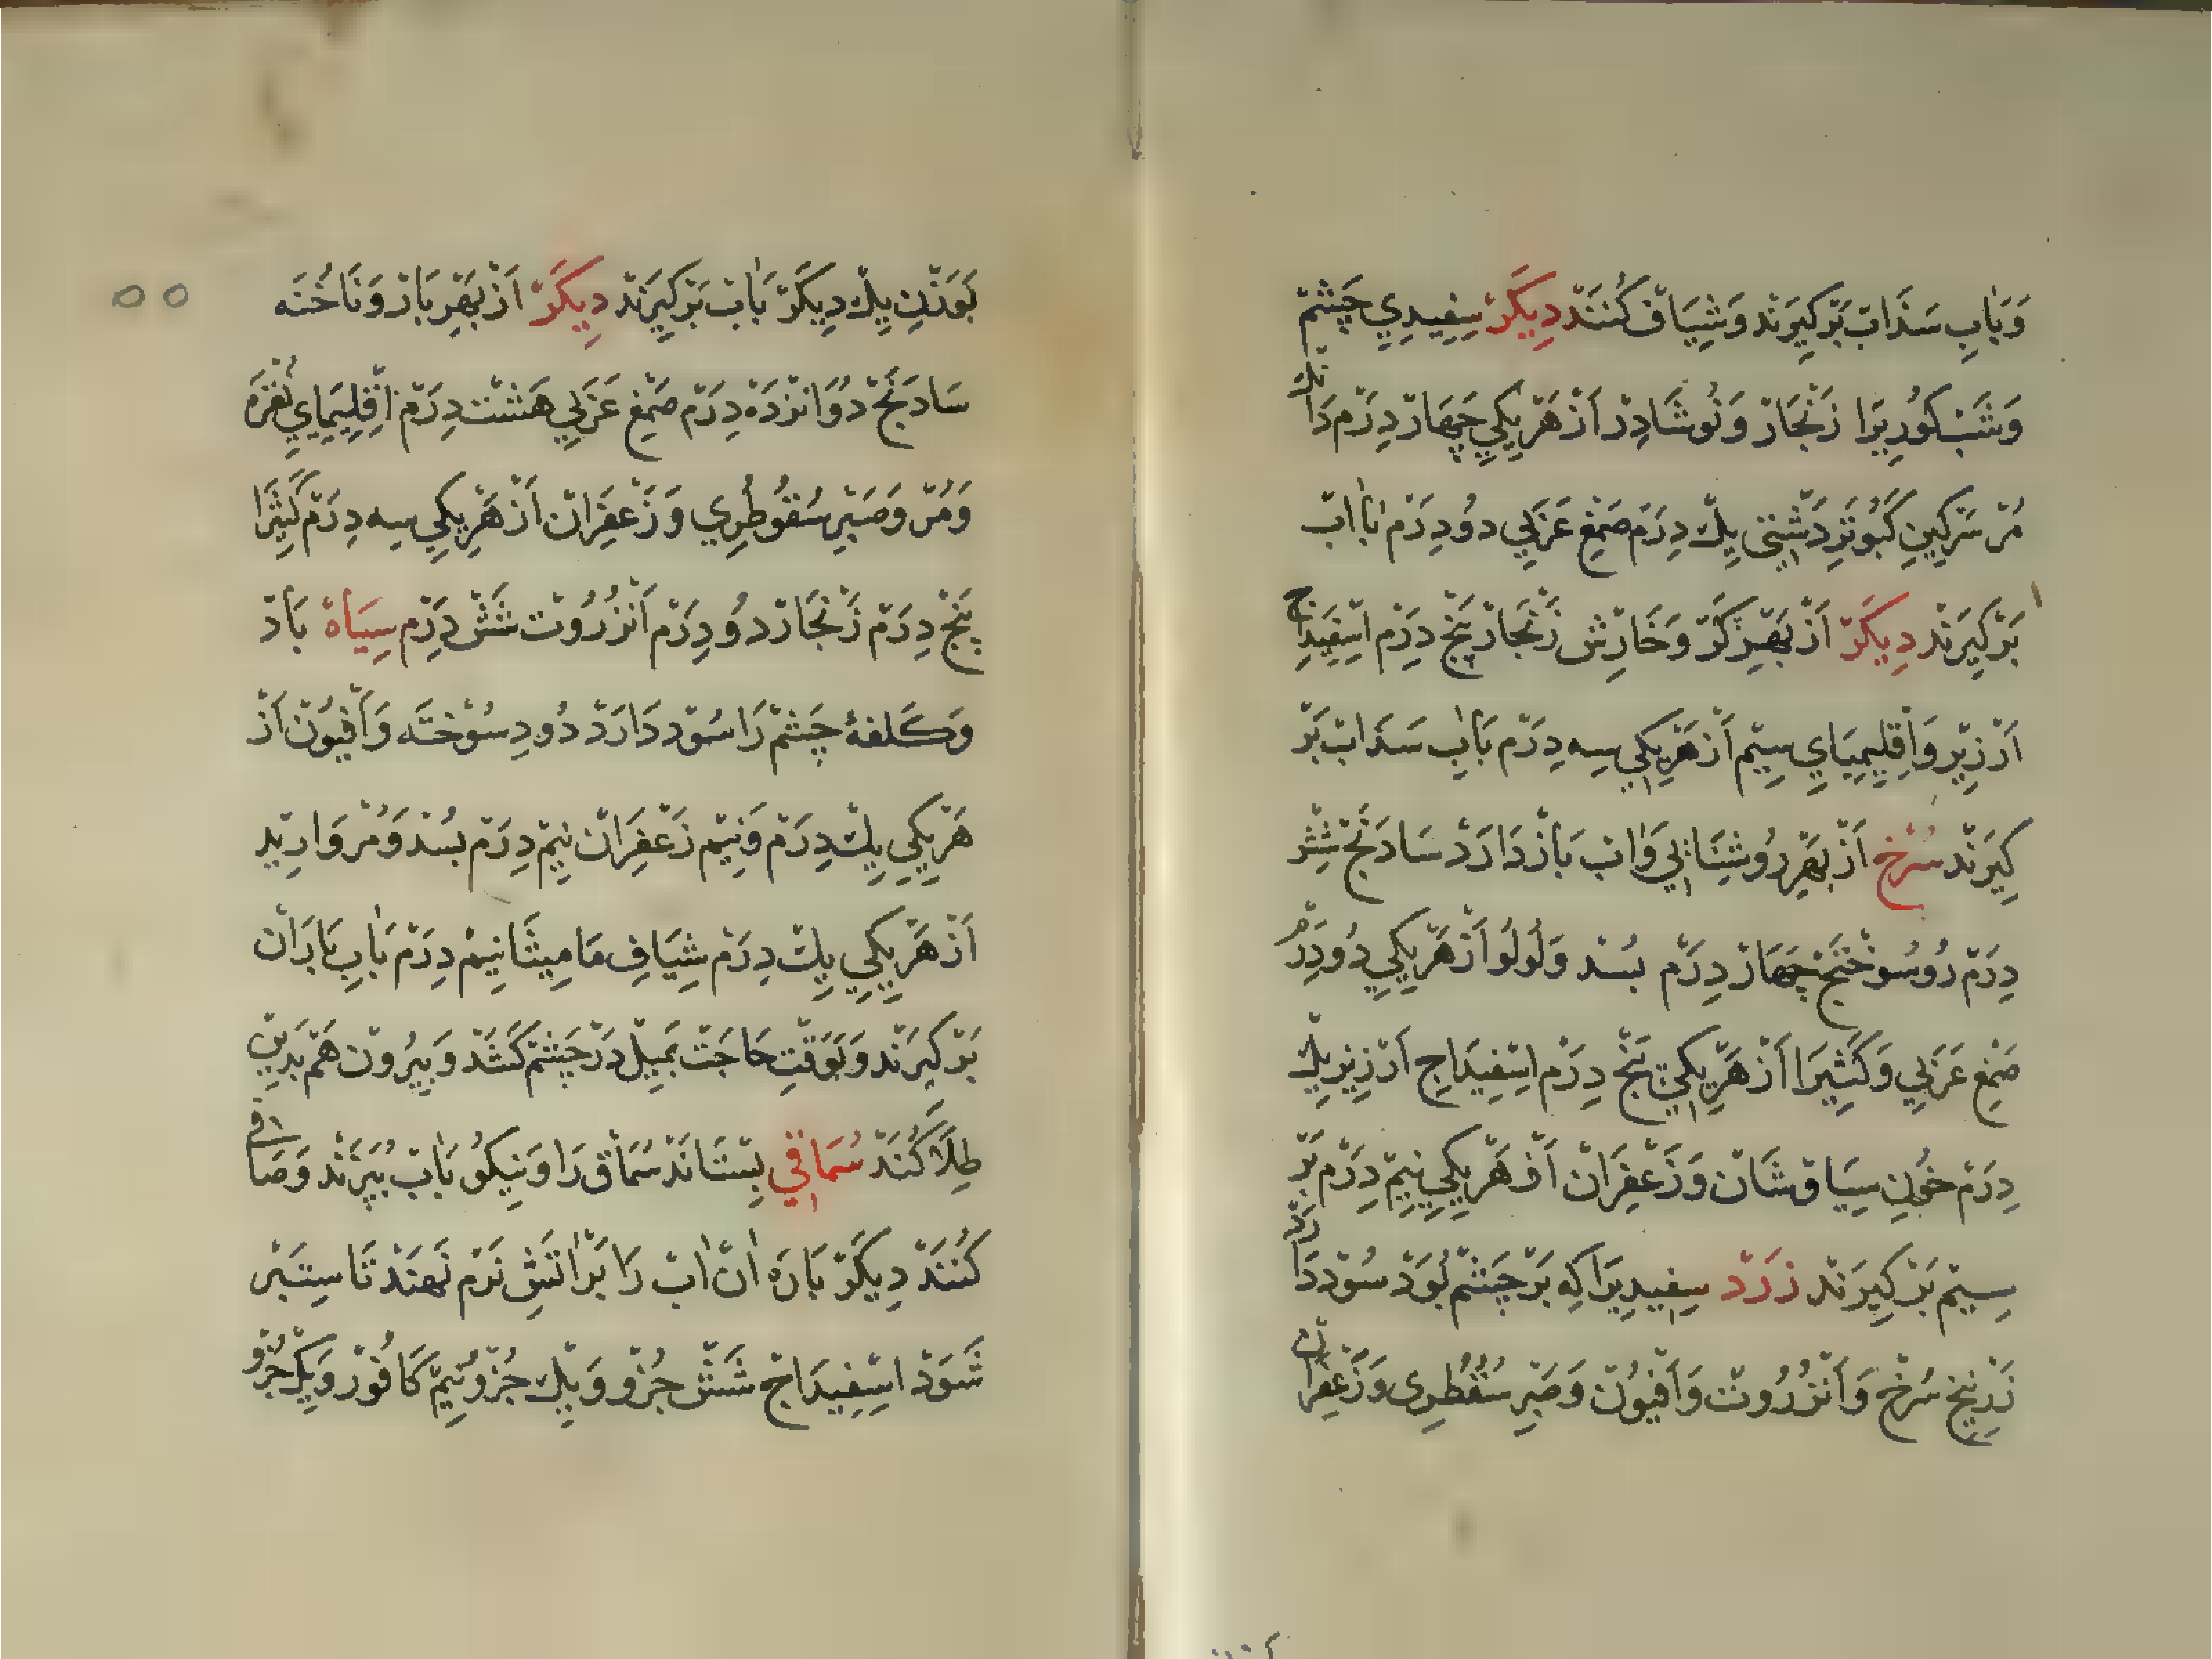 وَبَاٰبِ سَذَابْ بَرْكِيرَنْد وَشِيَافْ كُنَنَدْ دِيكَرْ سِفِيدِيِ چَشْمْ
وَشَبْ كُورِيرَا زَنْجَارْ وَنُوشَادِرْ اَزْ هَرْيِكِي چَهَارْ دِرَمْ دَاْنَكْ
مُرْ سَرْكِينِ كَبُوتَرِ دَشْتِي يِكْ دِرَمْ صَمْغِ عَرَبِي دُو دِرَمْ بَاٰابْ
بَرْكِيرَنْد دِيكَرْ اَزْ بَهْرِ كَرْ وَخَارِشْ زَنْجَارْ پَنْجْ دِرَمْ اسْفِيدَاجِ
اَرْزِيْر وَاَقْلِيمِيَايِ سِيْم اَزْ هَرْيِكِي سِه دِرَمْ بَاٰبِ سَذَابْ بَرْ
كِيرَنْد سُرْخ اَزْ بَهْرِ رُوشِنَايِي وَاٰبْ بَازْ دَارَدْ سَادَنَجْ شِشْ
دِرَمْ رُوسُوخْتَجْ چَهَارْ دِرَمْ بُسْد وَلُولُوا اَزْ هَرْيِكِي دُو دِرَمْ
صَمْغِ عَرَبِي وَكَثِيرَا اَزْ هَرْيِكِي پَنْجْ دِرَمْ اسْفِيدَاجِ اَرْزِيزِ يِكْ
دِرَمْ خُونِ سِيَاوْشَانْ وَزَعْفِرَانْ اَزْ هَرْيِكِي نِيمْ دِرَمْ بَرْ
سِيْم بَرْكِيرَنْد زَرْدْ سِفِيدِيرَا كِه بَرْ چَشْمْ بُوَدْ سُوْد دَارَدْ
زَرْنِيخِ سُرْخ وَاَنْزُرُوتْ وَاَفْيُونْ وَصَبْرِ سُقُطْرِى وَزَعْفِرَانْ
بَوَزْنِ يِكْ دِيكَرْ بَاٰبْ بَرْكِيرَنْد دِيكَرْ اَزْ بَهْرِ بَادْ وَنَاخُنَه
سَادَنَجْ دُوَانْزَدَه دِرَمْ صَمْغِ عَرَبِي هَشْتْ دِرَمْ اِقْلِيمَايِ نُقْرَه
وَمُرْ وَصَبْرِ سُقُوطْرِي وَزَعْفِرَانْ اَزْ هَرْيِكِي سِه دِرَمْ كَثِيْرَا
پَنْجْ دِرَمْ زَنْجَارْ دُو دِرَمْ اَنْزُرُوتْ شَشْ دِرَمْ سِيَاهْ بَادْ
وَكَلفهٔ چَشْمْ رَا سُوْد دَارَدْ دُودِ سُوْخْتَه وَاَفْيُونْ اَزْ
هَرْيِكِي يِكْ دِرَمْ وَنِيْم زَعْفِرَانْ نِيمْ دِرَمْ بُسْد وَمُرْوَارِيْد
اَزْ هَرْيِكِي يِكْ دِرَمْ شِيَافِ مَامِيثَا نِيمْ دِرَمْ بَاٰبِ بَارَانْ
بَرْكِيرَنْد وَبَوَقْتِ حَاجَتْ بَمِيلْ دَرْ چَشْمْ كَشَنْد وَبِيرُونْ هَمْ بَدِينْ
طِلَا كُنَنَدْ سُمَاقِي بِسْتَانَنْد سُمَاقْ رَا وَنِيكُو بَاٰبْ بِپَزَنْد وَصَافِي
كُنَنَدْ دِيكَرْ بَارَه اٰنْ اٰبْ رَا بَرْ اٰتَشِ نَرْم نَهَنْد تَا سِتَبْر
شَوَدْ اسْفِيدَاجْ شَشْ جُزْو وَيِكْ جُزْو نِيمْ كَافُورْ وَيِكْ جُزْو
٥٥